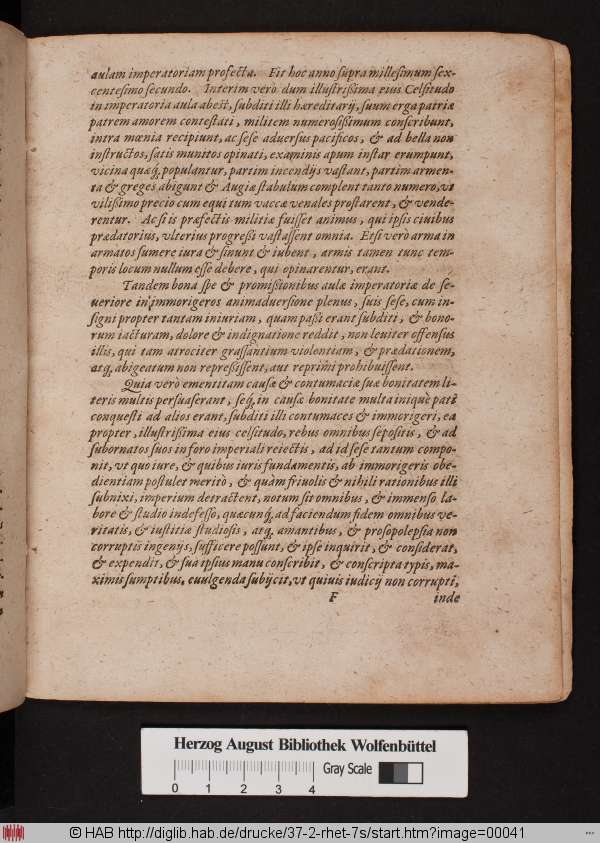 aulam imperatoriam profecta. Fit hoc anno supra millesimum sex-
centesimo secundo. Interim verò dum illustrißima eius Celsitudo
in imperatoria aula abest, subditi illi hæreditarij, suum erga patriæ
patrem amorem contestati, militem numerosißimum conscribunt,
intra mœnia recipiunt, ac sese aduersus pacificos, & ad bella non
instructos, satis munitos opinati, examinis apum instar erumpunt,
vicina quæq́, populantur, partim incendijs vastant, partim armen-
ta & greges abigunt & Augiæ stabulum complent tanto numero, vt
vilißimo precio cum equi tum vaccæ venales prostarent, & vende-
rentur. Ac si is præfectis militiæ fuisset animus, qui ipsis ciuibus
prædatorius, vlterius progreßi vastassent omnia. Etsi verò arma in
armatos sumere iura & sinunt & iubent, armis tamen tunc tem-
poris locum nullum esse debere, qui opinarentur, erant.
Tandem bona spe & promißionibus aulæ imperatoriæ de se-
ueriore in immorigeros animaduersione plenus, suis sese, cum in-
signi propter tantam iniuriam, quam paßi erant subditi, & bono-
rum iacturam, dolore & indignatione reddit, non leuiter offensus
illis, qui tam atrociter grassantium violentiam, & prædationem,
atq́, abigeatum non repreßissent, aut reprimi prohibuissent.
Quia verò ementitam causæ & contumaciæ suæ bonitatem li-
teris multis persuaserant, seq́, in causæ bonitate multa iniquè pati
conquesti ad alios erant, subditi illi contumaces & immorigeri, ea
propter, illustrißima eius celsitudo, rebus omnibus sepositis, & ad
subornatos suos in foro imperiali reiectis, ad id sese tantum compo-
nit, vt quo iure, & quibus iuris fundamentis, ab immorigeris obe-
dientiam postulet meritò, & quàm friuolis & nihili rationibus illi
subnixi, imperium detractent, notum sit omnibus, & immenso la-
bore & studio indefesso, quæcunq́, ad faciendum fidem omnibus ve-
ritatis, & iustitiæ studiosis, atq́, amantibus, & prosopolepsia non
corruptis ingenijs, sufficere possunt, & ipse inquirit, & considerat,
& expendit, & sua ipsius manu conscribit, & conscripta typis, ma-
ximis sumptibus, euulgenda subijcit, vt quiuis iudicij non corrupti,
F inde
Herzog August Bibliothek Wolfenbüttel
Gray Scale
0 1 2 3 4
© HAB http://diglib.hab.de/drucke/37-2-rhet-7s/start.htm?image=00041